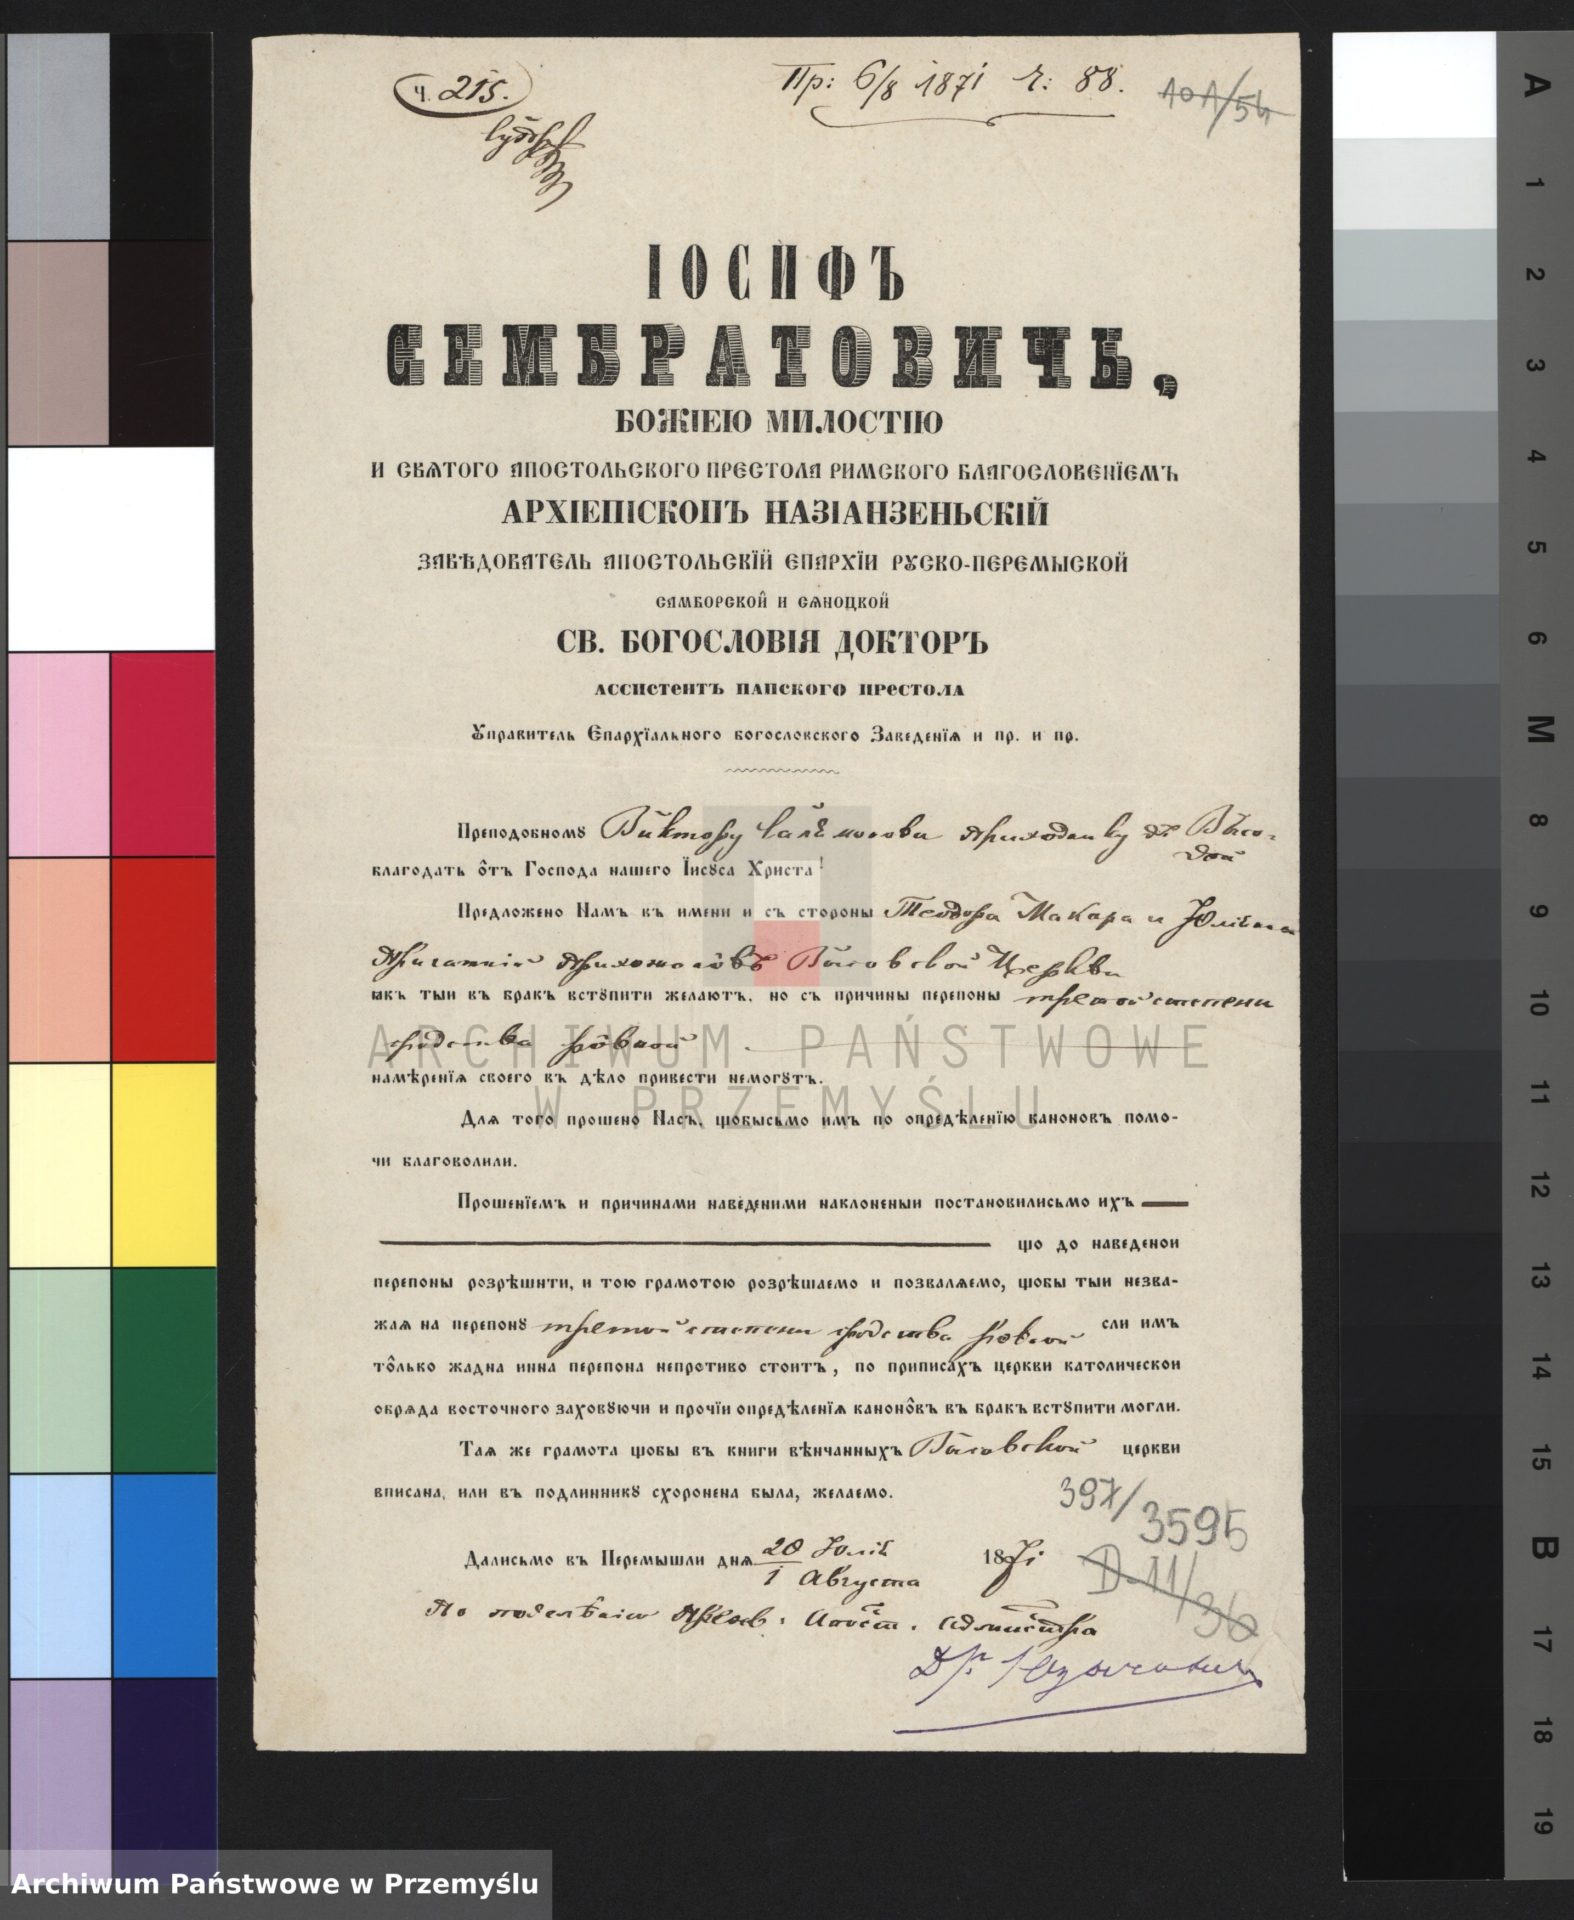 ч. 215.
Пр: 6/8 1871 Ч: 88.
101/54
ІОСИФЪ
СЕМБРАТОВИЧЬ,
БОЖІЕЮ МИЛОСТІЮ
И СВѦТОГО АПОСТОЛЬСКОГО ПРЕСТОЛА РИМСКОГО БЛАГОСЛОВЕНЇЕМЪ
АРХІЕПІСКОПЪ НАЗІАНЗЕНЬСКІЙ
ЗАВѢДОВАТЕЛЬ АПОСТОЛЬСКЇЙ ЕПАРХЇИ РꙊСКО-ПЕРЕМЫСКОЙ
САМБОРСКОЙ И СѦНОЦКОЙ
СВ. БОГОСЛОВІЯ ДОКТОРЪ
АССИСТЕНТЪ ПАПСКОГО ПРЕСТОЛА
Ꙋправитель Епархїального богословского Заведенїѧ и пр. и пр.
Преподобномꙋ Виктору приходнику
благодать о̂тъ Господа нашего Їисꙋса Христа!
Предложено Намъ въ имени и съ стороны Теодора Макара и
Церкви
ꙗкъ тыи въ бракъ встꙋпити желаютъ, но съ причины перепоны третой степени
сродства ро̂вной
намѣренїѧ своего въ дѣло привести немогꙋтъ.
Длѧ того прошено Насъ, щобысьмо имъ по опредѣленїю каноновъ помо-
чи благоволили.
Прошенїемъ и причинами наведеними наклоненыи постановилисьмо ихъ
що до наведенои
перепоны розрѣшити, и тою грамотою розрѣшаемо и позвалѧемо, щобы тыи незва-
жаѧ на перепонꙋ третой степени сродства ровной если имъ
то̂лько жадна инна перепона непротиво стоитъ, по приписахъ церкви католическои
обрѧда восточного заховꙋючи и прочїи опредѣленїѧ каноно̂въ въ бракъ встꙋпити могли.
Таѧ же грамота щобы въ книги вѣнчанныхъ церкви
вписана, или въ подлинникꙋ схоронена была, желаемо.
397/3595
Далисьмо въ Перемышли днѧ 20 Юлія 1871
1 Августа
D-11/36
По порученію Преосв. Апост. Администра
Др.
ARCHIWUM PAŃSTWOWE
W PRZEMYŚLU
Archiwum Państwowe w Przemyślu
A
1
2
3
4
5
6
M
8
9
10
11
12
13
14
15
B
17
18
19